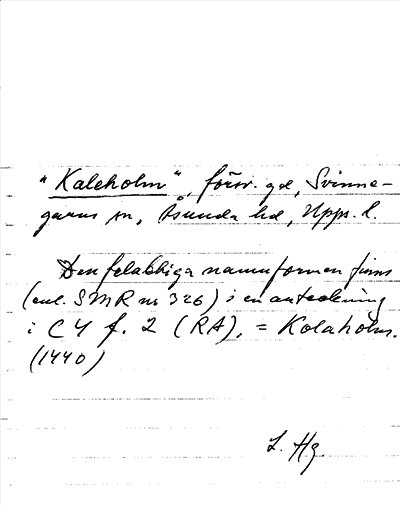 "Kaleholm", försv. gd, Svinne-
garns sn, Åsunda hd, Upps. l.
Den felaktiga namnformen finns
(enl. SMR nr 326) i en anteckning
i C 4 f. 2 (RA), = Kolaholm.
(1440)
L. Hg